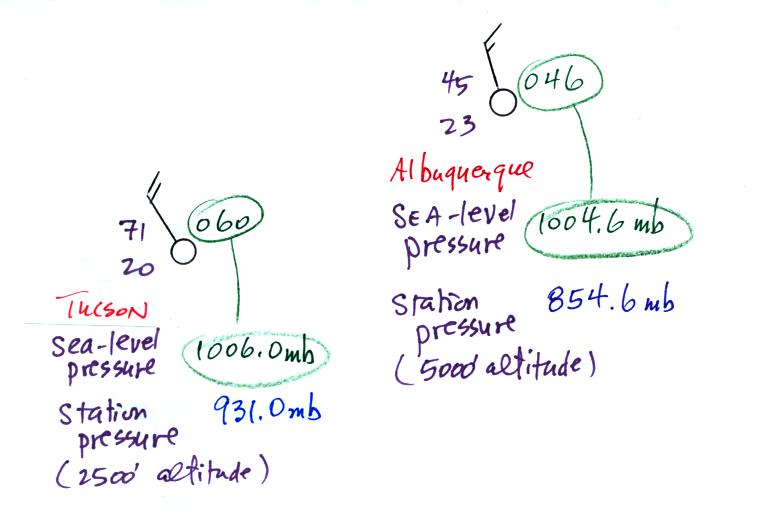 71
060
20
Tucson
Sea-level
pressure
1006.0mb
Station
pressure
931.0mb
(2500' altitude)
45
046
23
Albuquerque
SEA-level
pressure
1004.6 mb
Station
pressure
854.6 mb
(5000' altitude)